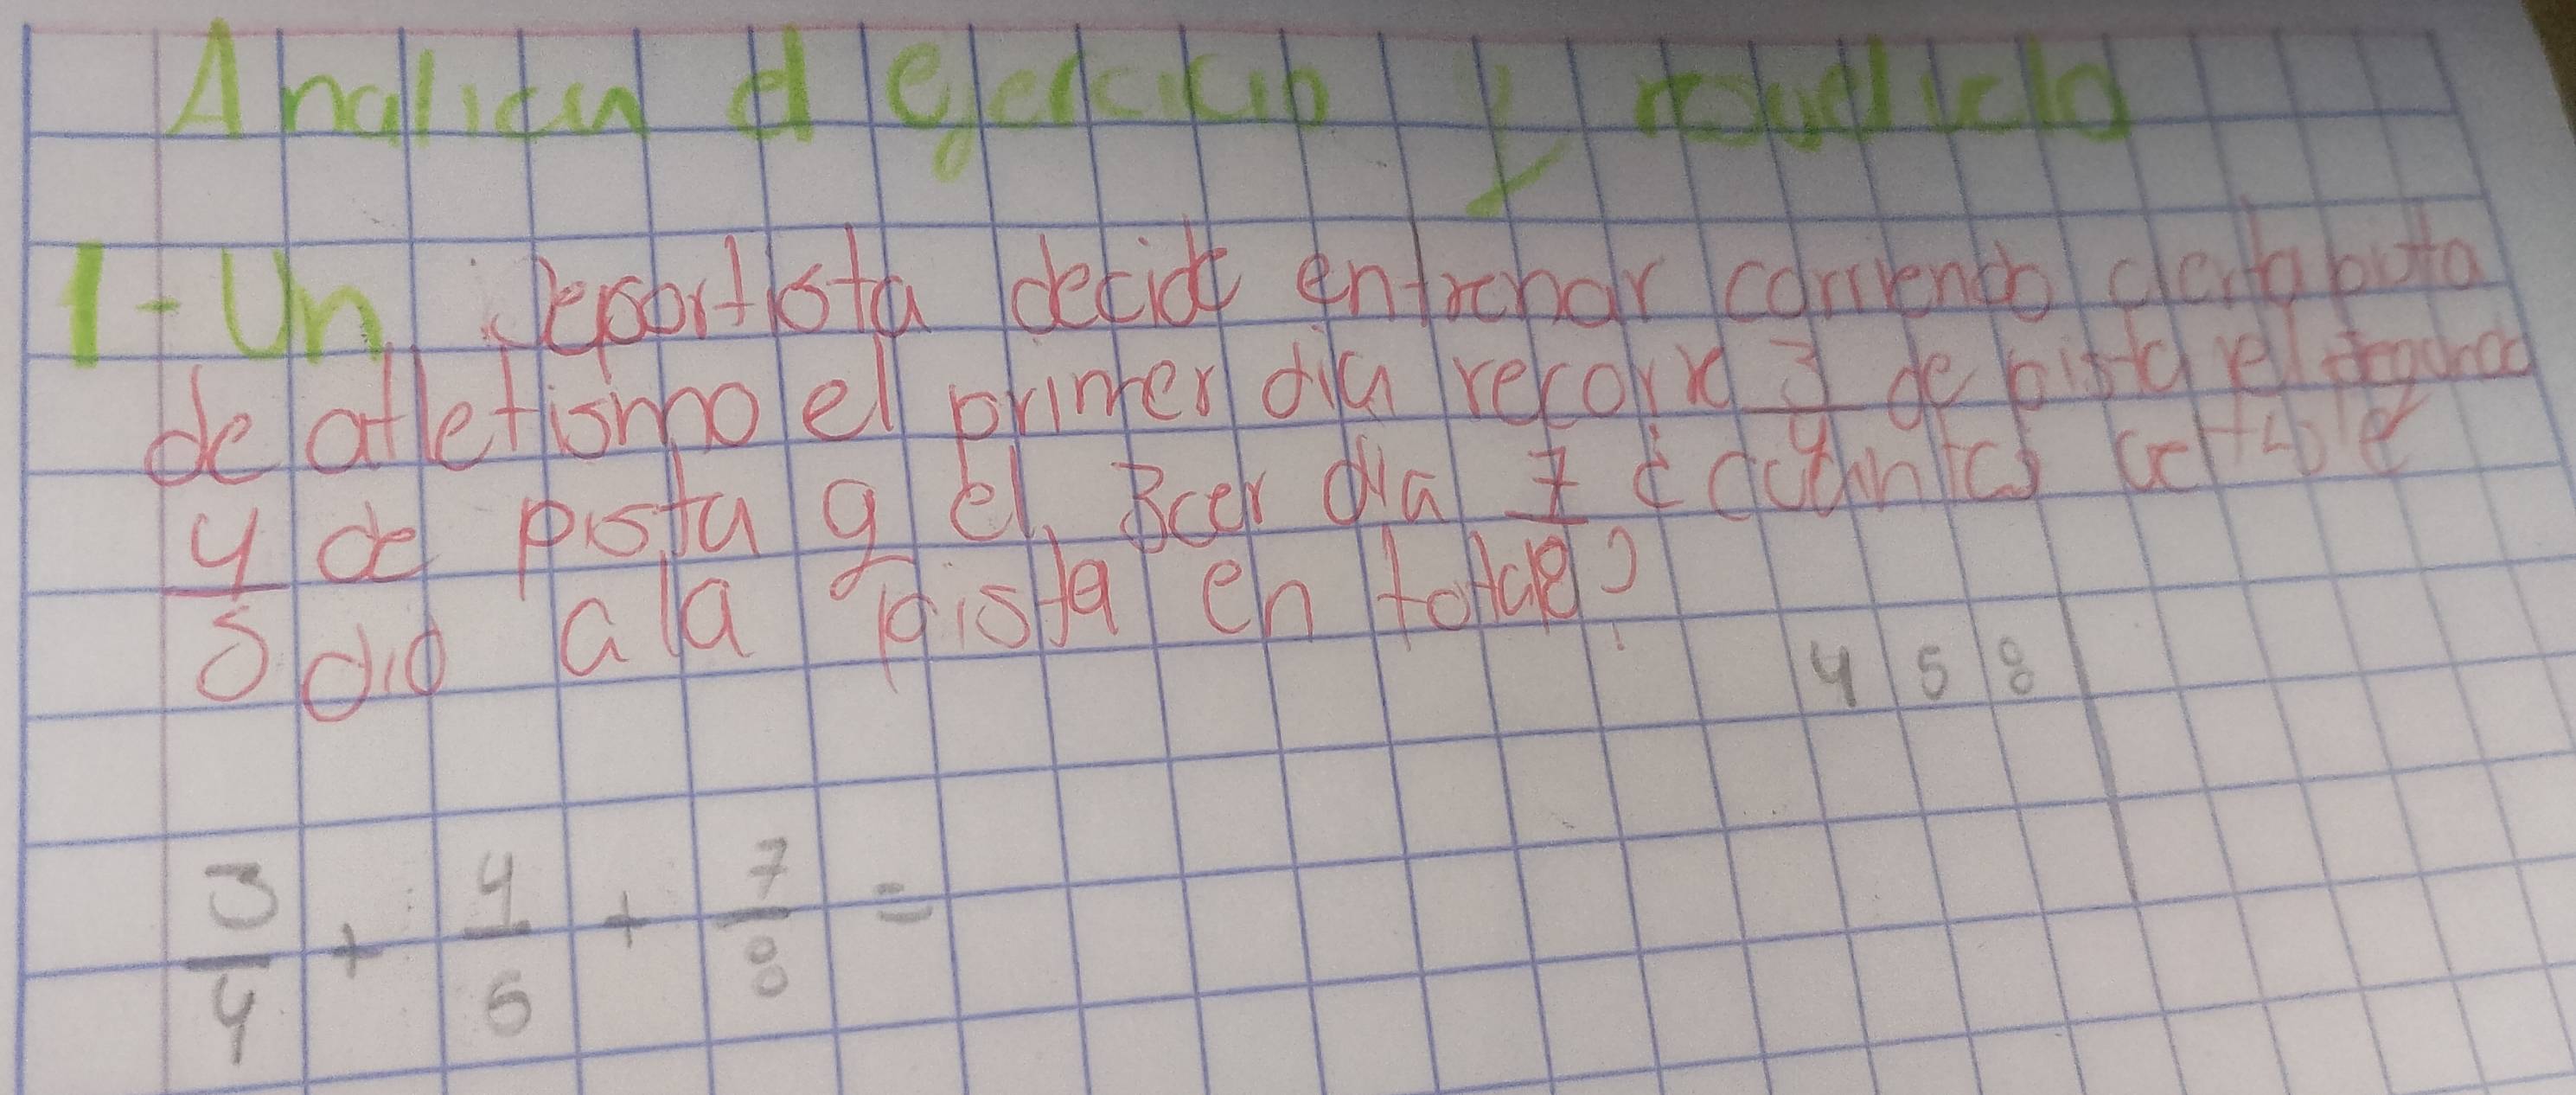 Analicu el ejercicio y rouelvelo
1-Un deportista decide entrenar corriendo cierta pista
de atletismo el primer dia recorre 3/4 de pista el segundo
4/5 de pista y el 3cer dia 7/8 ¿ cuantas
dio a la pista en total?
4 5 8
3/4 + 4/5 + 7/8 =